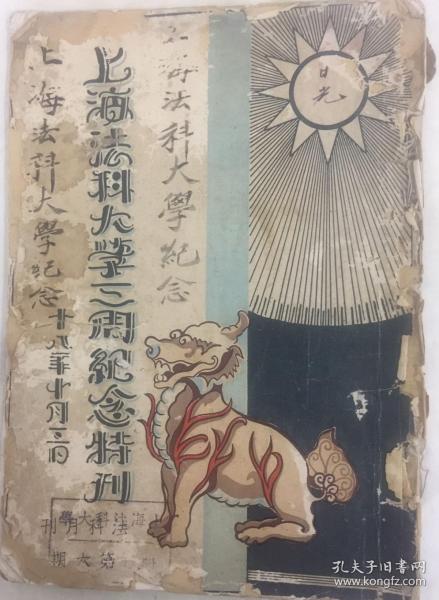 上海法科大學紀念
上海法科大学三周紀念特刊
上海法科大學紀念
十八年十月二日
日光
海法科大學
法科月刊
第六期
孔夫子旧书网
www.kongfz.com